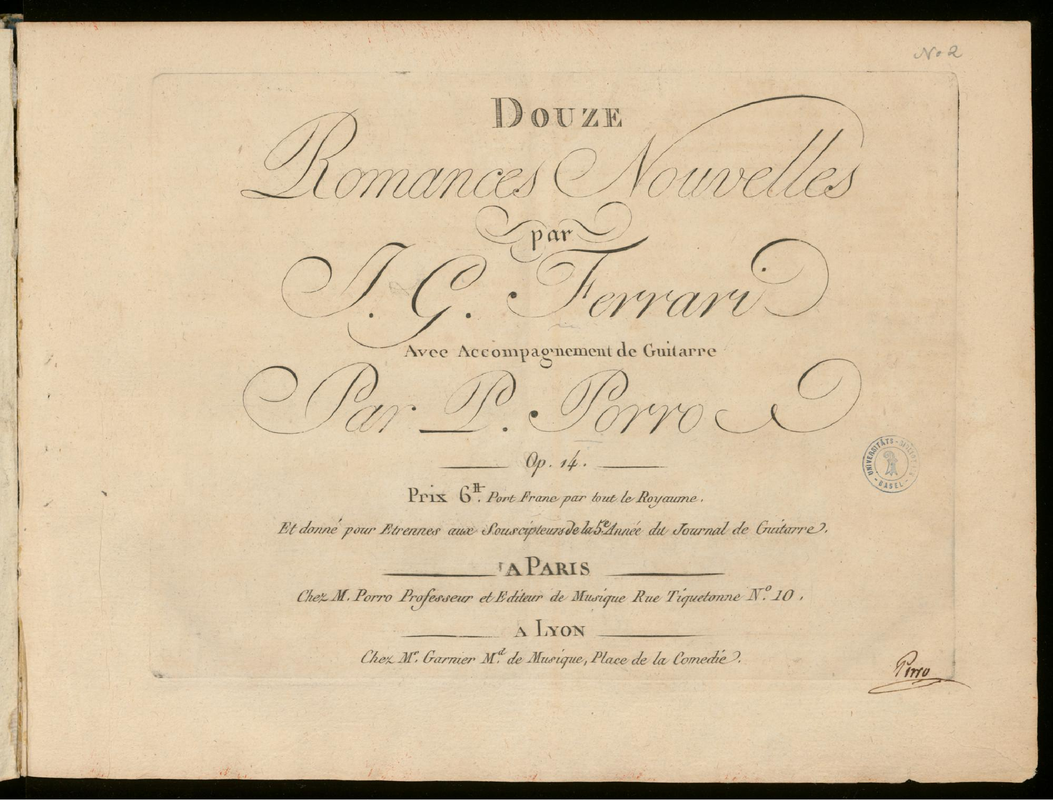 No 2
DOUZE
Romances Nouvelles
par
J. G. Ferrari
Avec Accompagnement de Guitarre
Par P. Porro
Op. 14.
Prix 6.tt Port Franc par tout le Royaume.
Et donné pour Etrennes aux Souscipteurs de la 5e Année du Journal de Guitarre.
A PARIS
Chez M. Porro Professeur et Editeur de Musique Rue Tiquetonne No. 10.
A LYON
Chez Mr. Garnier Md. de Musique, Place de la Comedie.
Porro
UNIVERSITÄTS-BIBLIOTHEK BASEL